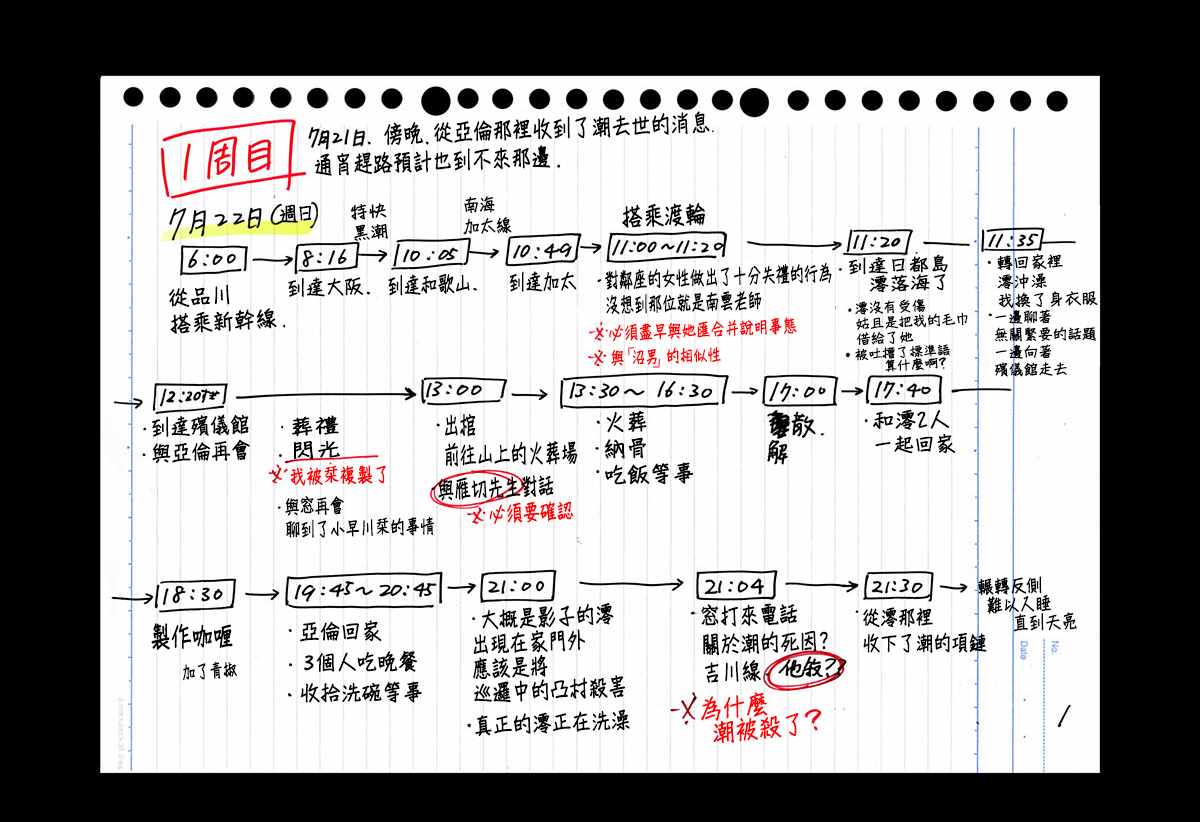 1周目
7月21日. 傍晚. 從亞倫那裡收到了潮去世的消息.
通宵趕路預計也到不來那邊.
7月22日(週日)
特快
黑潮
南海
加太線
搭乘渡輪
6:00
8:16
10:05
10:49
11:00~11:20
11:20
11:35
從品川
搭乘新幹線.
到達大阪.
到達和歌山.
到達加太
・對鄰座的女性做出了十分失禮的行為
沒想到那位就是南雲老師
※必須盡早與她匯合并說明事態
※與「沼男」的相似性
・到達日都島
澪落海了
・澪沒有受傷
姑且是把我的毛巾
借給了她
・被吐槽了標準語
算什麼啊?
・轉回家裡
澪沖澡
我換了身衣服
・一邊聊著
無關緊要的話題
一邊向著
殯儀館走去
12:20すぎ
13:00
13:30~16:30
17:00
17:40
・到達殯儀館
・與亞倫再會
・葬禮
・閃光
※我被栞複製了
・與窓再會
聊到了小早川栞的事情
・出棺
前往山上的火葬場
與雁切先生對話
※必須要確認
・火葬
・納骨
・吃飯等事
散.
解
・和澪2人
一起回家
18:30
19:45~20:45
21:00
21:04
21:30
輾轉反側
難以入睡
直到天亮
製作咖喱
加了青椒
・亞倫回家
・3個人吃晚餐
・收拾洗碗等事
・大概是影子的澪
出現在家門外
應該是將
巡邏中的凸村殺害
・真正的澪正在洗澡
・窓打來電話
關於潮的死因?
吉川線. 他殺??
※為什麼
潮被殺了?
・從澪那裡
收下了潮的項鏈
No.
Date
1